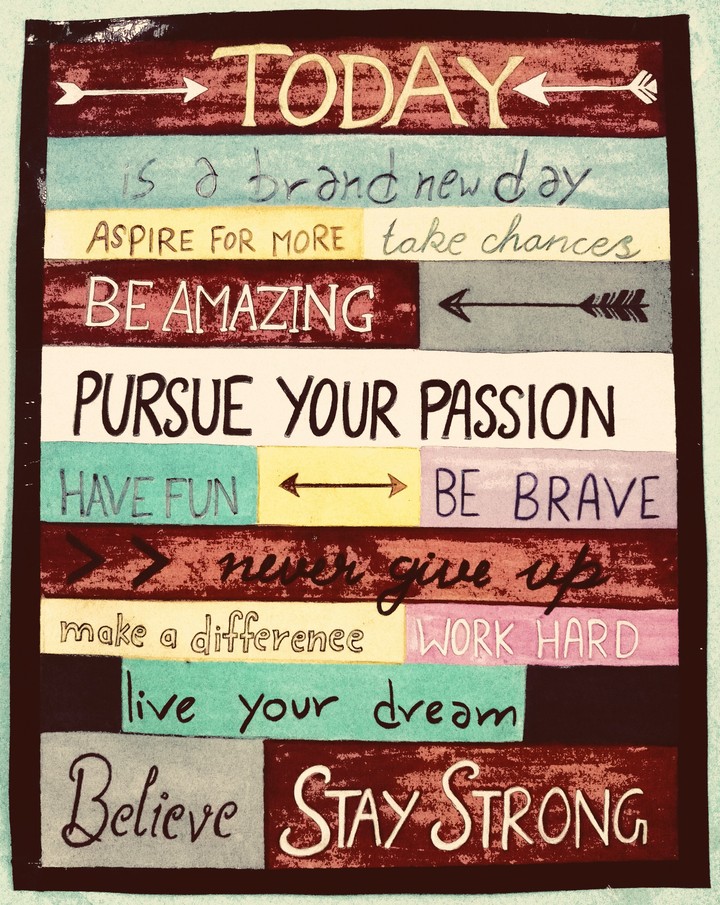 TODAY
is a brand new day
ASPIRE FOR MORE take chances
BE AMAZING
PURSUE YOUR PASSION
HAVE FUN BE BRAVE
never give up
make a difference WORK HARD
live your dream
Believe STAY STRONG